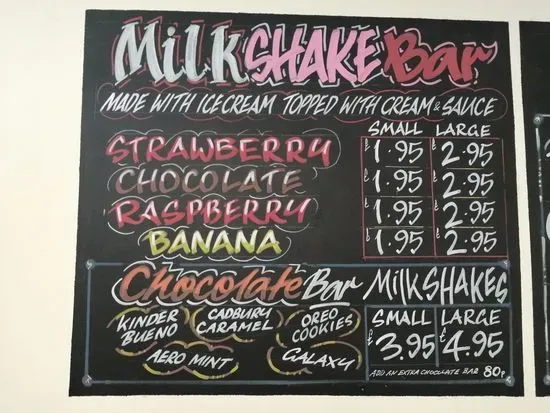 MilkSHAKE Bar
MADE WITH ICE CREAM TOPPED WITH CREAM & SAUCE
SMALL LARGE
STRAWBERRY £1.95 £2.95
CHOCOLATE £1.95 £2.95
RASPBERRY £1.95 £2.95
BANANA £1.95 £2.95
Chocolate Bar MilkSHAKES
KINDER BUENO
CADBURY CARAMEL
OREO COOKIES
AERO MINT
GALAXY
SMALL LARGE
£3.95 £4.95
ADD AN EXTRA CHOCOLATE BAR 80p